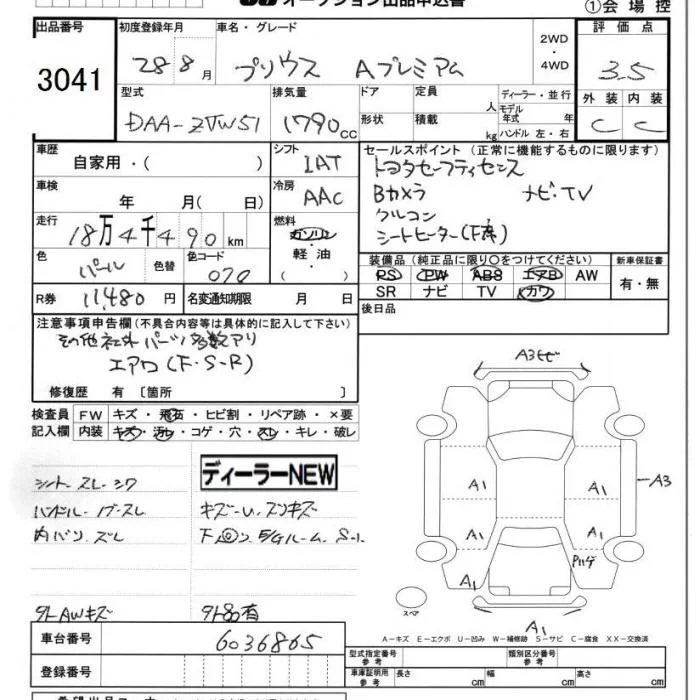 オークション出品申込書
①会場控
出品番号
3041
初度登録年月
28 8月
車名・グレード
プリウス Aプレミアム
2WD
・
4WD
評価点
3.5
外装 内装
C C
型式
DAA-ZVW51
排気量
1790cc
ドア
形状
定員
人
積載
kg
ディーラー・並行
モデル
年式 年
ハンドル 左・右
車歴
自家用・( )
シフト
IAT
車検
年 月( 日)
冷房
AAC
走行
18万4千490km
燃料
ガソリン
・
軽油
・
( )
色
パール
色替
色コード
070
R券
11,480円
名変通知期限 月 日
セールスポイント(正常に機能するものに限ります)
トヨタセーフティセンス
Bカメラ ナビ・TV
クルコン
シートヒーター(F席)
装備品(純正品に限り○をつけてください)
PS PW ABS エアB AW
SR ナビ TV カワ
新車保証書
有・無
後日品
注意事項申告欄(不具合内容等は具体的に記入して下さい)
その他社外パーツ多数アリ
エアロ(F・S・R)
修復歴 有〔箇所 〕
検査員
記入欄
FW キズ・飛石・ヒビ割・リペア跡・×要
内装 キズ・汚レ・コゲ・穴・スレ・キレ・破レ
ディーラーNEW
シート・スレ・シワ
ハンドル・
内バリ・ズレ
キズ-U・スリキズ
E/Gルーム、S-1
外AWキズ
外品有
A3ヒビ
A1
A1
A1
A1
A3
Pハゲ
A1
A1
スペア
A-キズ E-エクボ U-凹み W-補修跡 S-サビ C-腐食 XX-交換済
車台番号
6036865
登録番号
型式指定番号
参考
類別区分番号
参考
車庫証明用
参考
長さ cm
幅 cm
高さ cm